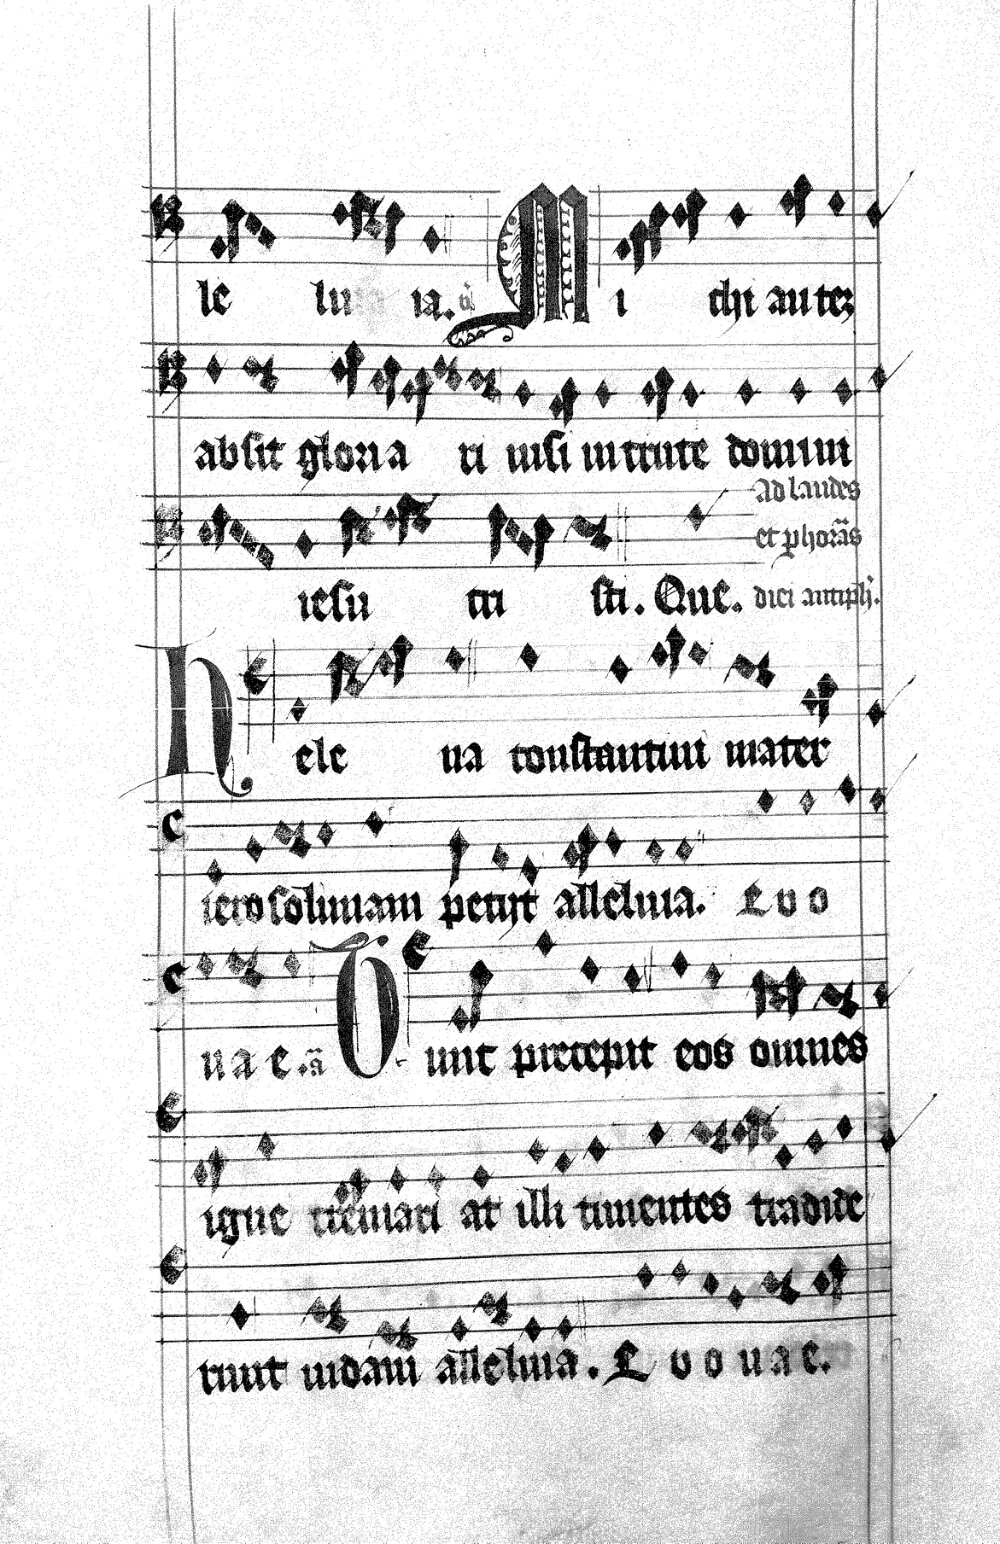 le lu ia. M i chi autez
absit gloria ri nisi in cruce domini
Ad laudes
et p horas
iesu cri sti. Que. diei antiph.
Hele na constantini mater
ierosolimam petijt alleluia. E v o
u a e. Tunc precepit eos omnes
igne cremari at illi timentes tradide
runt iudam alleluia. E v o u a e.